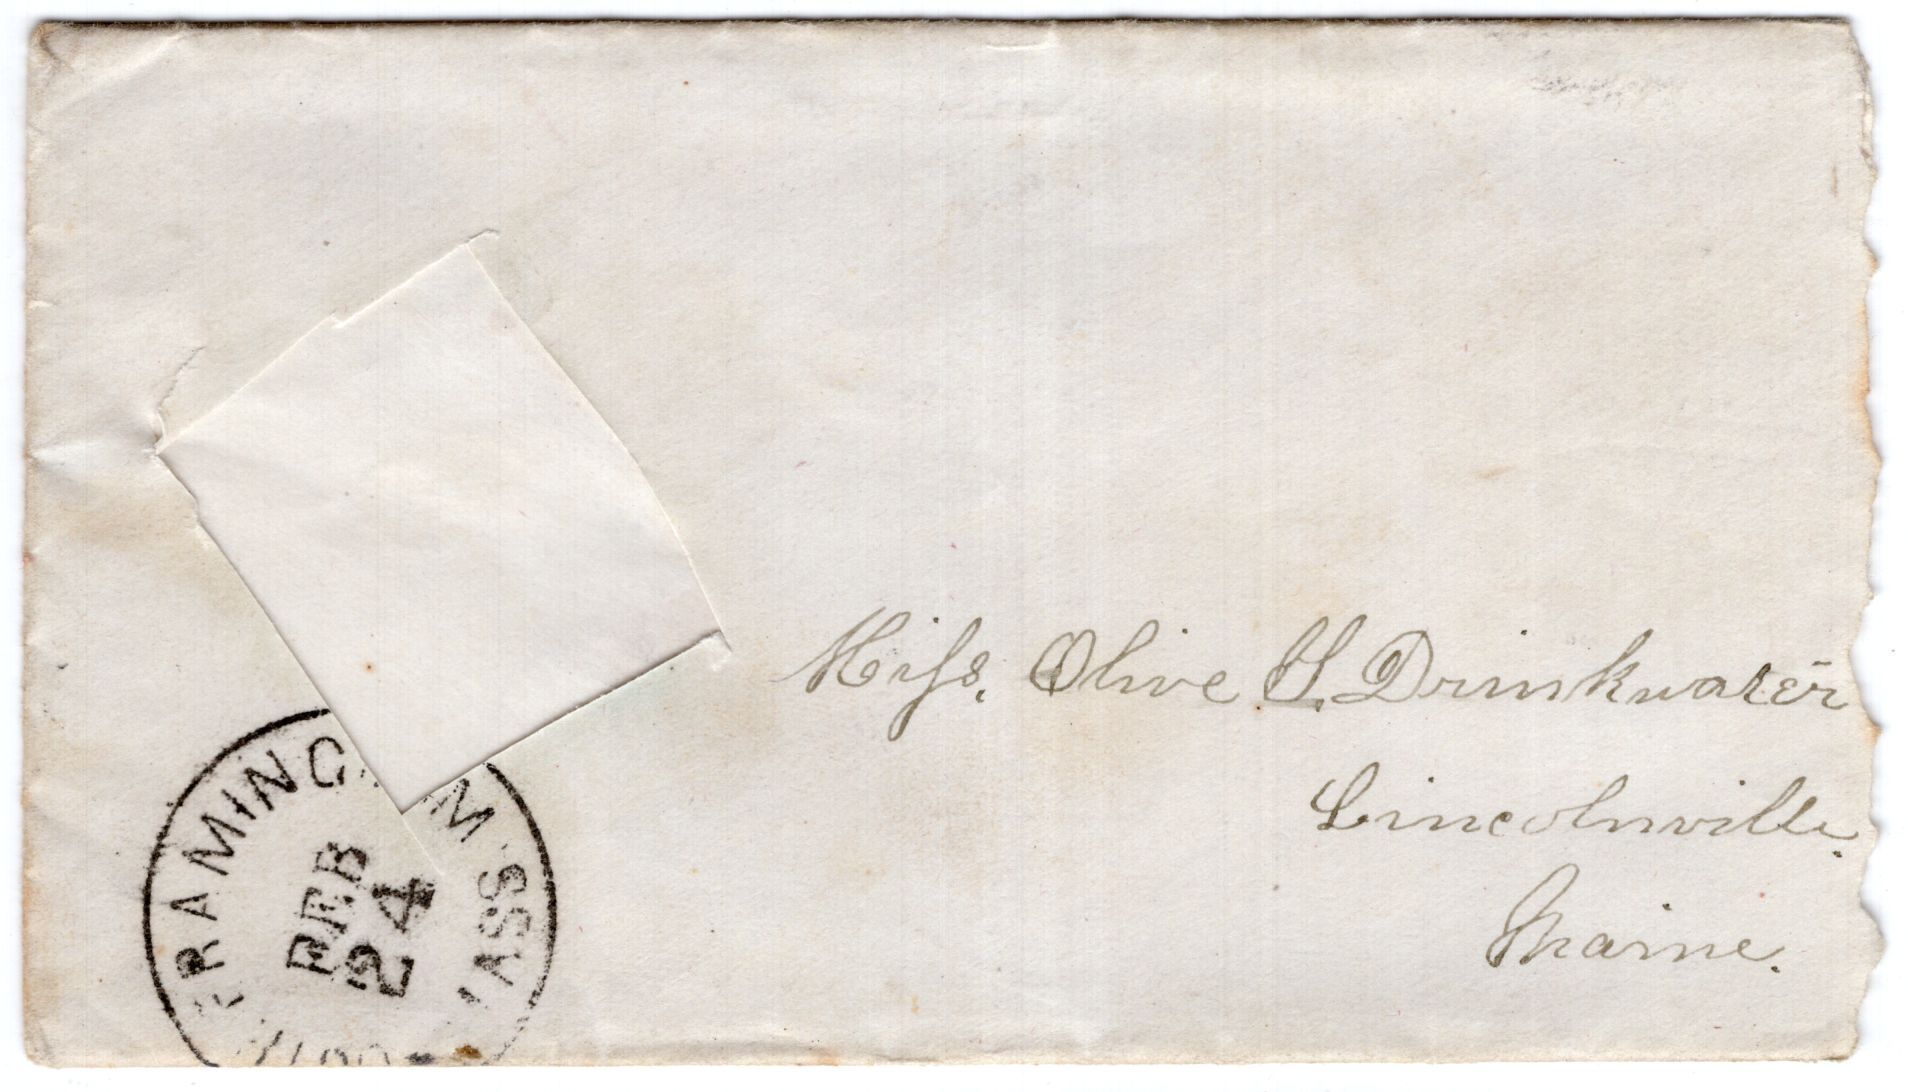 Miss. Olive S. Drinkwater
Lincolnville.
Maine.
FRAMING M MASS
FEB
24